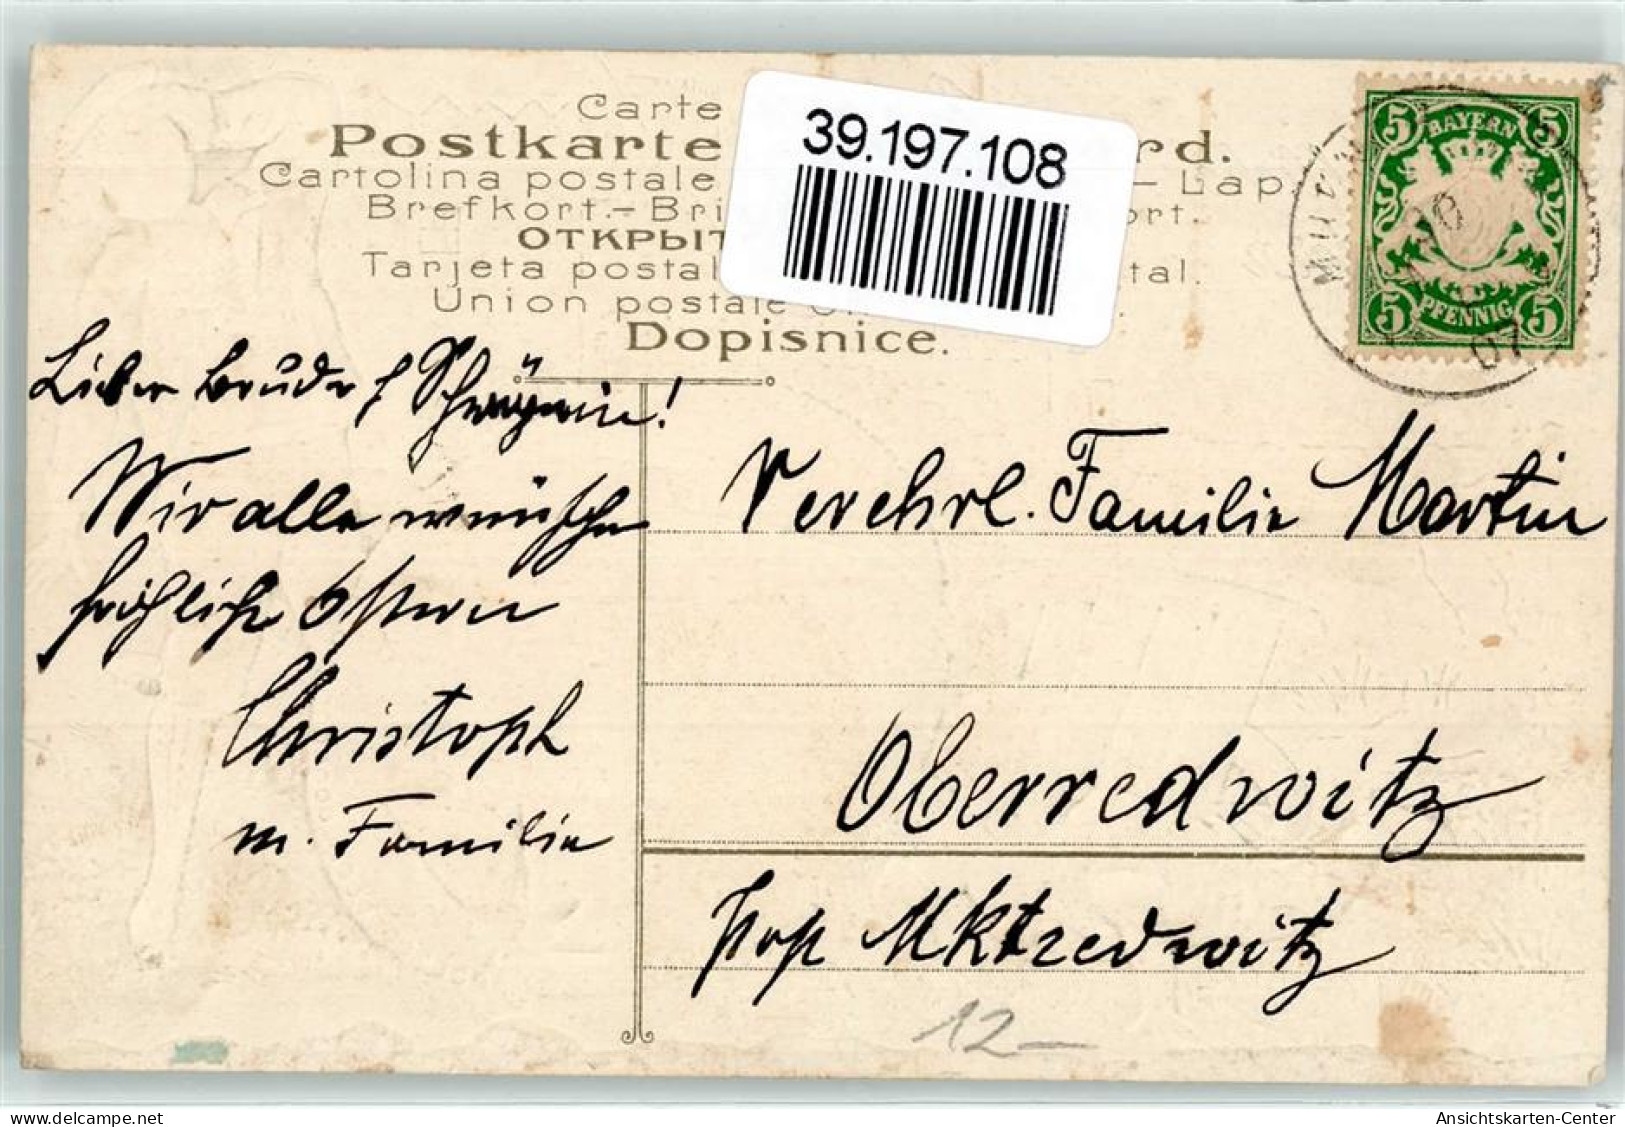 Carte
Postkarte rd.
Cartolina postale – Lap.
Brefkort.–Bri ort.
ОТКРЫТ
Tarjeta postal tal.
Union postale
Dopisnice.
39.197.108
BAYERN
5 5
5 5
PFENNIG
07
Lieber Bruder & Schwägerin!
Wir alle wünschen
fröhliche Ostern
Christoph
m. Familie
Verehrl. Familie Martin
Oberredwitz
Post Mktredwitz
12–
www.ansichtskarten-center.de
Ansichtskarten-Center